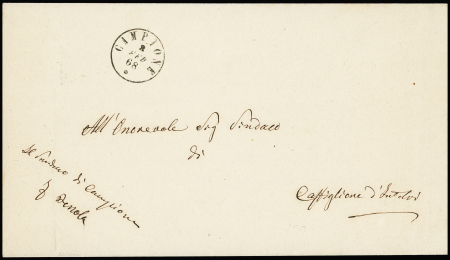 CAMPIONE
2
FEB
68
All'Onorevole Sig Sindaco
di
Castiglione d'Intelvi
Il Sindaco di Campione